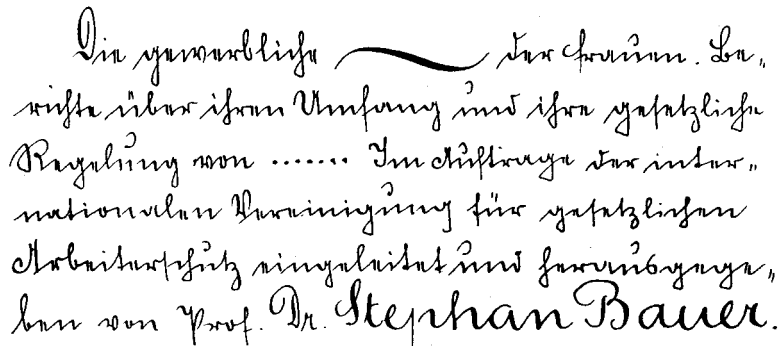 Die gewerbliche ~ der Frauen. Be-
richte über ihren Umfang und ihre gesetzliche
Regelung von ....... Im Auftrage der inter-
nationalen Vereinigung für gesetzlichen
Arbeiterschutz eingeleitet und herausgege-
ben von Prof. Dr. Stephan Bauer.